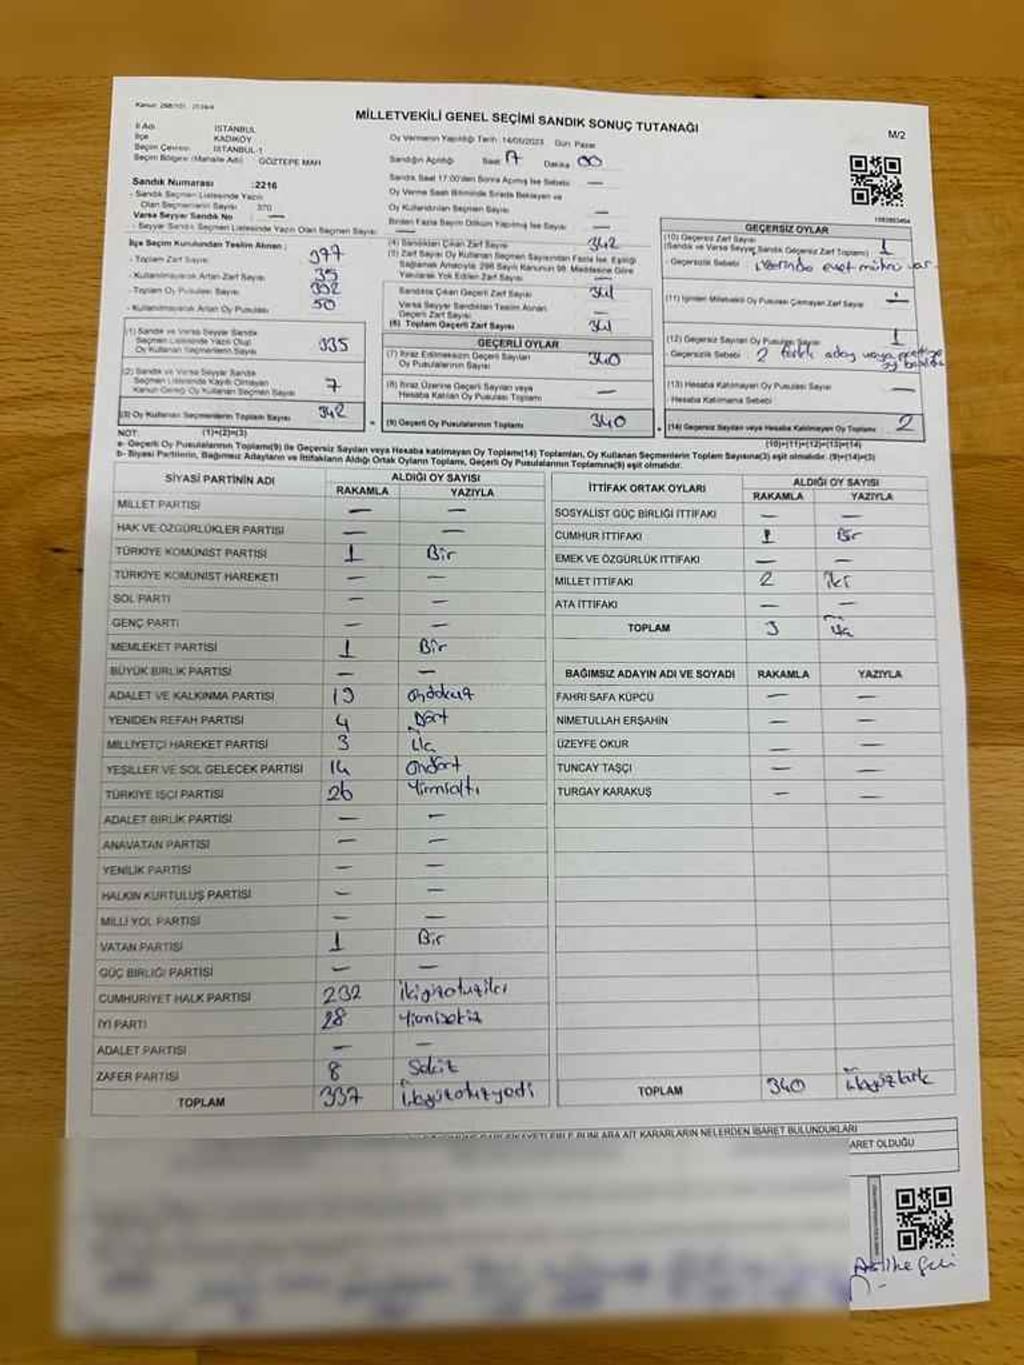 Kanun: 298/101, 2839/4
MİLLETVEKİLİ GENEL SEÇİMİ SANDIK SONUÇ TUTANAĞI
M/2
İl Adı İSTANBUL
İlçe KADIKÖY
Seçim Çevresi İSTANBUL-1
Seçim Bölgesi (Mahalle Adı) GÖZTEPE MAH
Sandık Numarası :2216
- Sandık Seçmen Listesinde Yazılı
Olan Seçmenlerin Sayısı 370
Varsa Seyyar Sandık No —
- Seyyar Sandık Seçmen Listesinde Yazılı Olan Seçmen Sayısı —
Oy Vermenin Yapıldığı Tarih 14/05/2023 Gün Pazar
Sandığın Açıldığı Saat 17 Dakika 00
Sandık Saat 17:00'den Sonra Açılmış İse Sebebi —
Oy Verme Saati Bitiminde Sırada Bekleyen ve
Oy Kullandırılan Seçmen Sayısı —
Birden Fazla Seçim Döküm Yapılmış İse Sayısı —
İlçe Seçim Kurulundan Teslim Alınan :
- Toplam Zarf Sayısı 377
- Kullanılmayarak Artan Zarf Sayısı 35
- Toplam Oy Pusulası Sayısı
- Kullanılmayarak Artan Oy Pusulası 50
(1) Sandık ve Varsa Seyyar Sandık
Seçmen Listesinde Yazılı Olup
Oy Kullanan Seçmenlerin Sayısı 335
(2) Sandık ve Varsa Seyyar Sandık
Seçmen Listesinde Kayıtlı Olmayan
Kanun Gereği Oy Kullanan Seçmen Sayısı 7
(3) Oy Kullanan Seçmenlerin Toplam Sayısı 342
(1)+(2)=(3)
(4) Sandıktan Çıkan Zarf Sayısı 342
(5) Zarf Sayısı Oy Kullanan Seçmen Sayısından Fazla İse, Eşitliği
Sağlamak Amacıyla 298 Sayılı Kanunun 98. Maddesine Göre
Yakılarak Yok Edilen Zarf Sayısı —
Sandıkta Çıkan Geçerli Zarf Sayısı 341
Varsa Seyyar Sandıktan Teslim Alınan
Geçerli Zarf Sayısı —
(6) Toplam Geçerli Zarf Sayısı 341
GEÇERLİ OYLAR
(7) İtiraz Edilmeksizin Geçerli Sayılan
Oy Pusulalarının Sayısı 340
(8) İtiraz Üzerine Geçerli Sayılan veya
Hesaba Katılan Oy Pusulası Toplamı —
(9) Geçerli Oy Pusulalarının Toplamı 340
GEÇERSİZ OYLAR
(10) Geçersiz Zarf Sayısı
(Sandık ve Varsa Seyyar Sandık Geçersiz Zarf Toplamı) 1
- Geçersizlik Sebebi üzerinde evet mührü var.
(11) İçinden Milletvekili Oy Pusulası Çıkmayan Zarf Sayısı —
(12) Geçersiz Sayılan Oy Pusulası Sayısı 1
- Geçersizlik Sebebi 2 farklı aday veya
(13) Hesaba Katılmayan Oy Pusulası Sayısı —
- Hesaba Katılmama Sebebi
(14) Geçersiz Sayılan veya Hesaba Katılmayan Oy Toplamı 2
(10)+(11)+(12)+(13)=(14)
NOT:
a- Geçerli Oy Pusulalarının Toplamı(9) ile Geçersiz Sayılan veya Hesaba katılmayan Oy Toplamı(14) Toplamları, Oy Kullanan Seçmenlerin Toplam Sayısına(3) eşit olmalıdır. (9)+(14)=(3)
b- Siyasi Partilerin, Bağımsız Adayların ve İttifakların Aldığı Ortak Oyların Toplamı, Geçerli Oy Pusulalarının Toplamına(9) eşit olmalıdır.
SİYASİ PARTİNİN ADI ALDIĞI OY SAYISI
RAKAMLA YAZIYLA
MİLLET PARTİSİ — —
HAK VE ÖZGÜRLÜKLER PARTİSİ — —
TÜRKİYE KOMÜNİST PARTİSİ 1 Bir
TÜRKİYE KOMÜNİST HAREKETİ — —
SOL PARTİ — —
GENÇ PARTİ — —
MEMLEKET PARTİSİ 1 Bir
BÜYÜK BİRLİK PARTİSİ — —
ADALET VE KALKINMA PARTİSİ 19 Ondokuz
YENİDEN REFAH PARTİSİ 4 Dört
MİLLİYETÇİ HAREKET PARTİSİ 3 Üç
YEŞİLLER VE SOL GELECEK PARTİSİ 14 Ondört
TÜRKİYE İŞÇİ PARTİSİ 26 Yirmialtı
ADALET BİRLİK PARTİSİ — —
ANAVATAN PARTİSİ — —
YENİLİK PARTİSİ — —
HALKIN KURTULUŞ PARTİSİ — —
MİLLİ YOL PARTİSİ — —
VATAN PARTİSİ 1 Bir
GÜÇ BİRLİĞİ PARTİSİ — —
CUMHURİYET HALK PARTİSİ 232 İkiyüzotuziki
İYİ PARTİ 28 Yirmisekiz
ADALET PARTİSİ — —
ZAFER PARTİSİ 8 Sekiz
TOPLAM 337 Üçyüzotuzyedi
İTTİFAK ORTAK OYLARI ALDIĞI OY SAYISI
RAKAMLA YAZIYLA
SOSYALİST GÜÇ BİRLİĞİ İTTİFAKI — —
CUMHUR İTTİFAKI 1 Bir
EMEK VE ÖZGÜRLÜK İTTİFAKI — —
MİLLET İTTİFAKI 2 İki
ATA İTTİFAKI — —
TOPLAM 3 Üç
BAĞIMSIZ ADAYIN ADI VE SOYADI RAKAMLA YAZIYLA
FAHRİ SAFA KÜPCÜ — —
NİMETULLAH ERŞAHİN — —
ÜZEYFE OKUR — —
TUNCAY TAŞÇI — —
TURGAY KARAKUŞ — —
TOPLAM 340 Üçyüzkırk
BUNLARA AİT KARARLARIN NELERDEN İBARET BULUNDUKLARI
ARET OLDUĞU